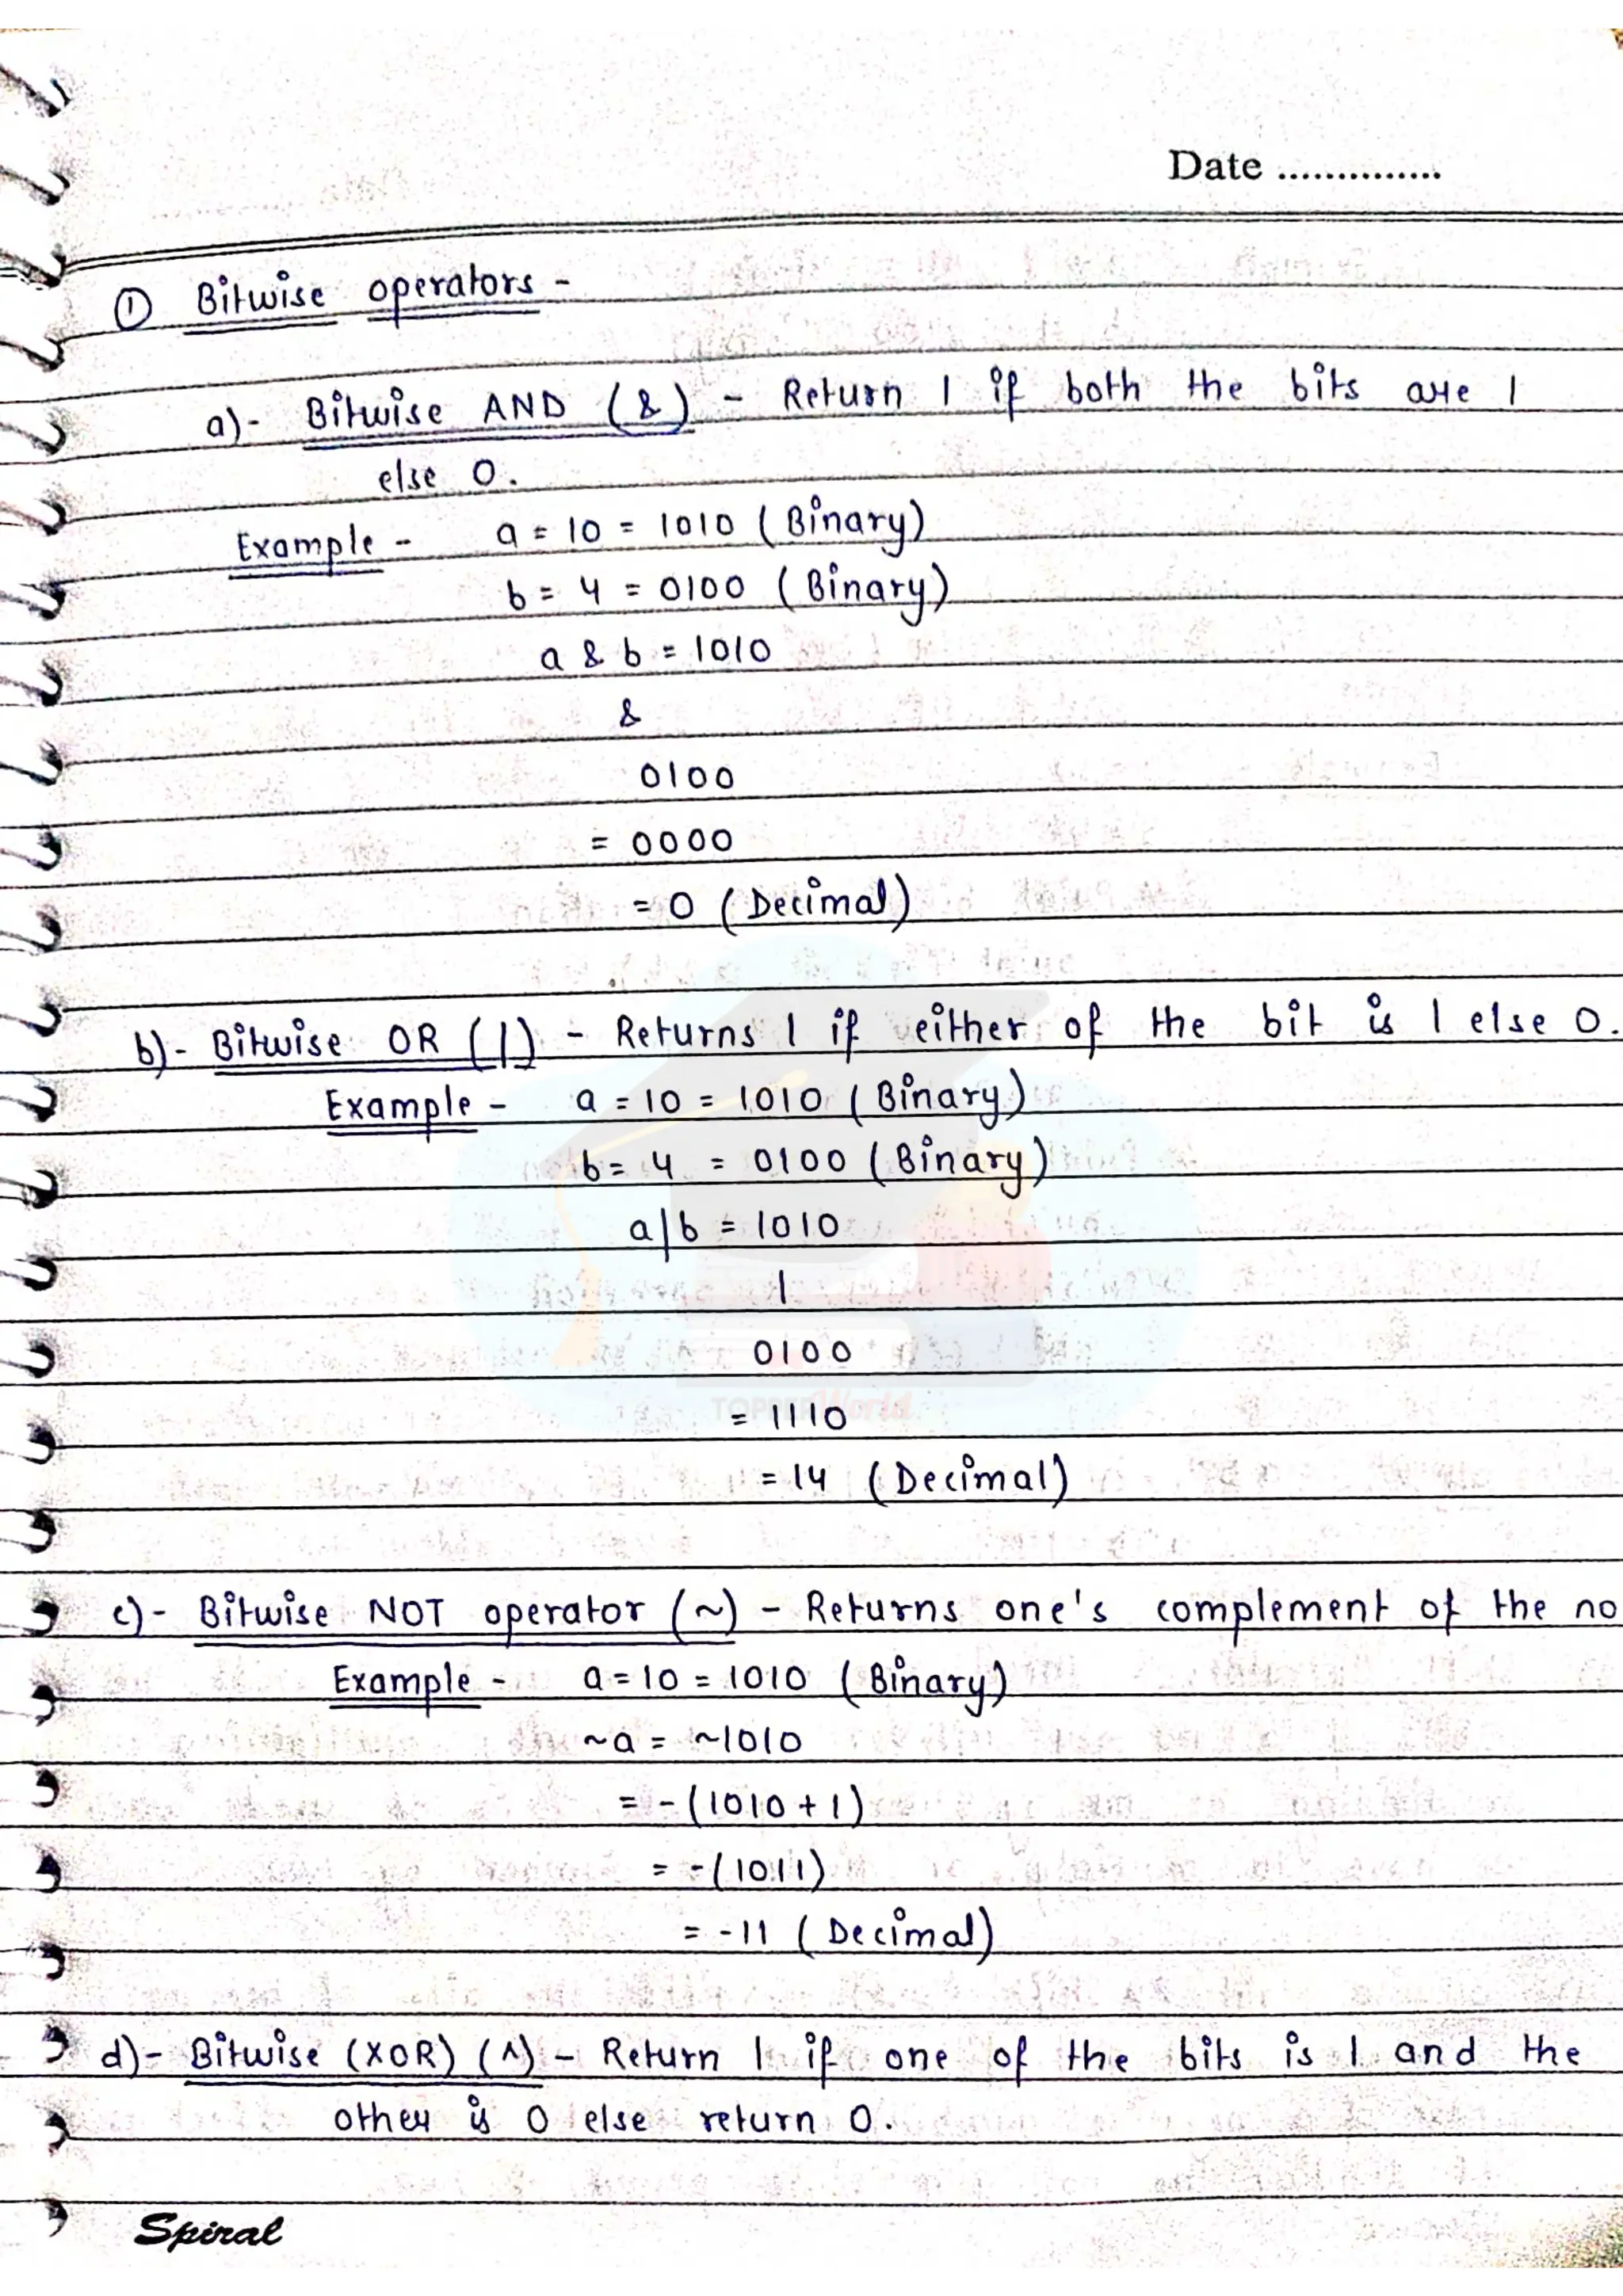 Date ..............
① Bitwise operators -
a)- Bitwise AND (&) - Return 1 if both the bits are 1
else 0.
Example - a = 10 = 1010 (Binary)
b = 4 = 0100 (Binary)
a & b = 1010
&
0100
= 0000
= 0 (Decimal)
b)- Bitwise OR (|) - Returns 1 if either of the bit is 1 else 0.
Example - a = 10 = 1010 (Binary)
b = 4 = 0100 (Binary)
a|b = 1010
|
0100
TOPPERWorld
= 1110
= 14 (Decimal)
c)- Bitwise NOT operator (~) - Returns one's complement of the no
Example - a = 10 = 1010 (Binary)
~a = ~1010
= -(1010 + 1)
= -(1011)
= -11 (Decimal)
d)- Bitwise (XOR) (^) - Return 1 if one of the bits is 1 and the
other is 0 else return 0.
Spiral